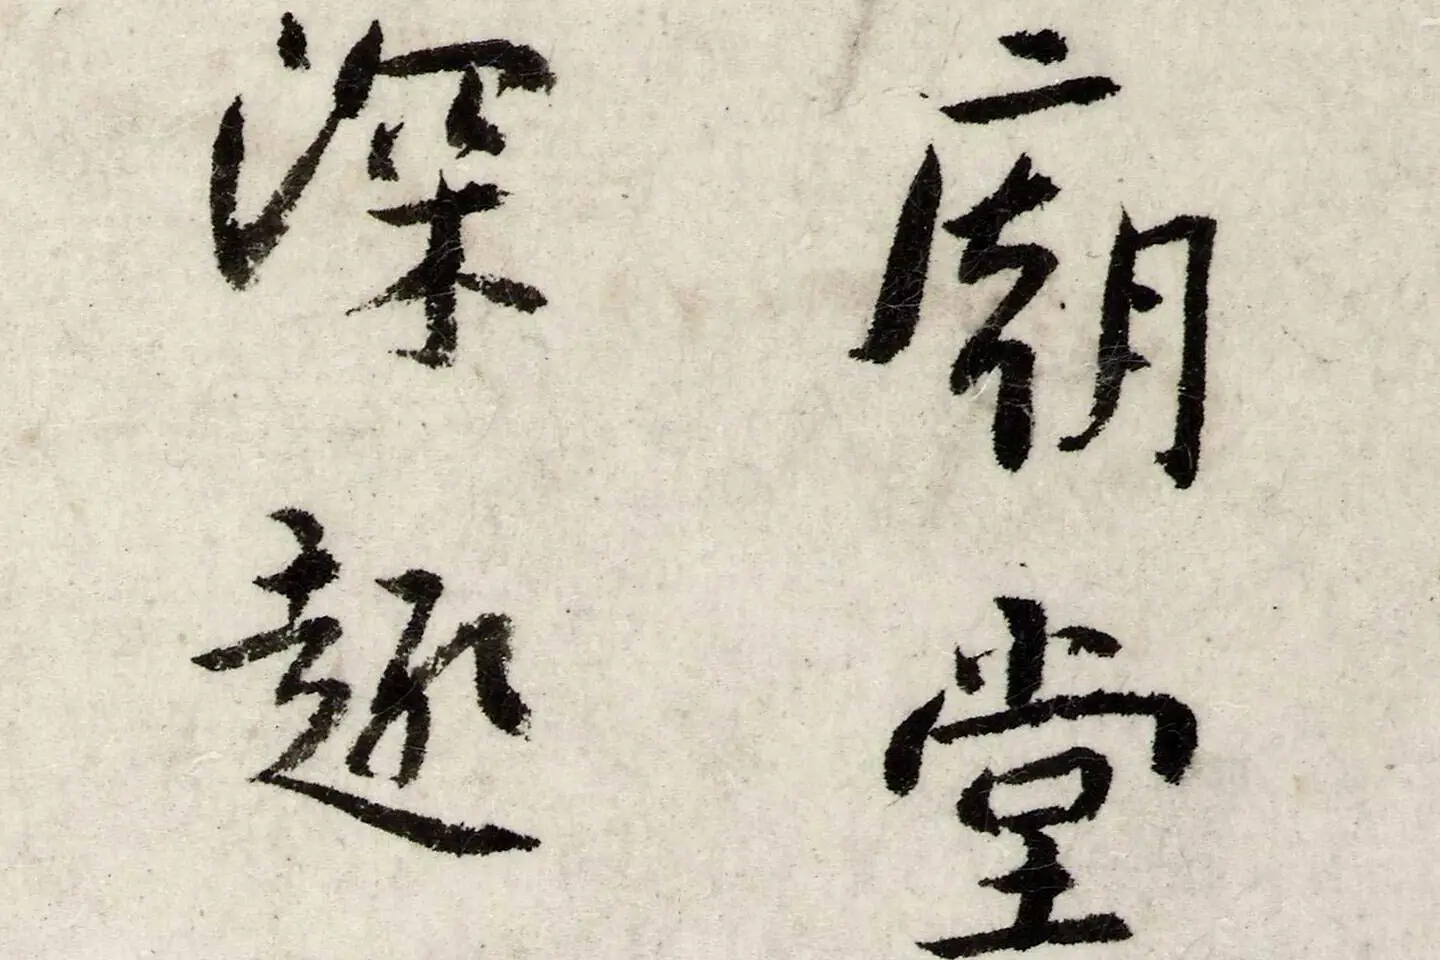 廟堂
深趣